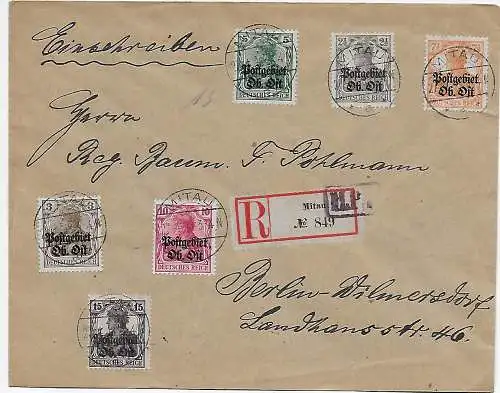 Einschreiben
5 5
Postgebiet
Ob. Ost
DEUTSCHES REICH
MITAU
2½ 2½
Postgebiet
Ob. Ost
DEUTSCHES REICH
MITAU
7½
Postgebiet
Ob. Ost
DEUTSCHES REICH
13
Herrn
Reg. Baum. F. Pohlmann
3 3
Postgebiet
Ob. Ost
DEUTSCHES REICH
MITAU
10 10
Postgebiet
Ob. Ost
DEUTSCHES REICH
MITAU
R
Mitau
№ 849
15 15
Postgebiet
Ob. Ost
DEUTSCHES REICH
Berlin-Wilmersdorf
Landhausstr. 46.